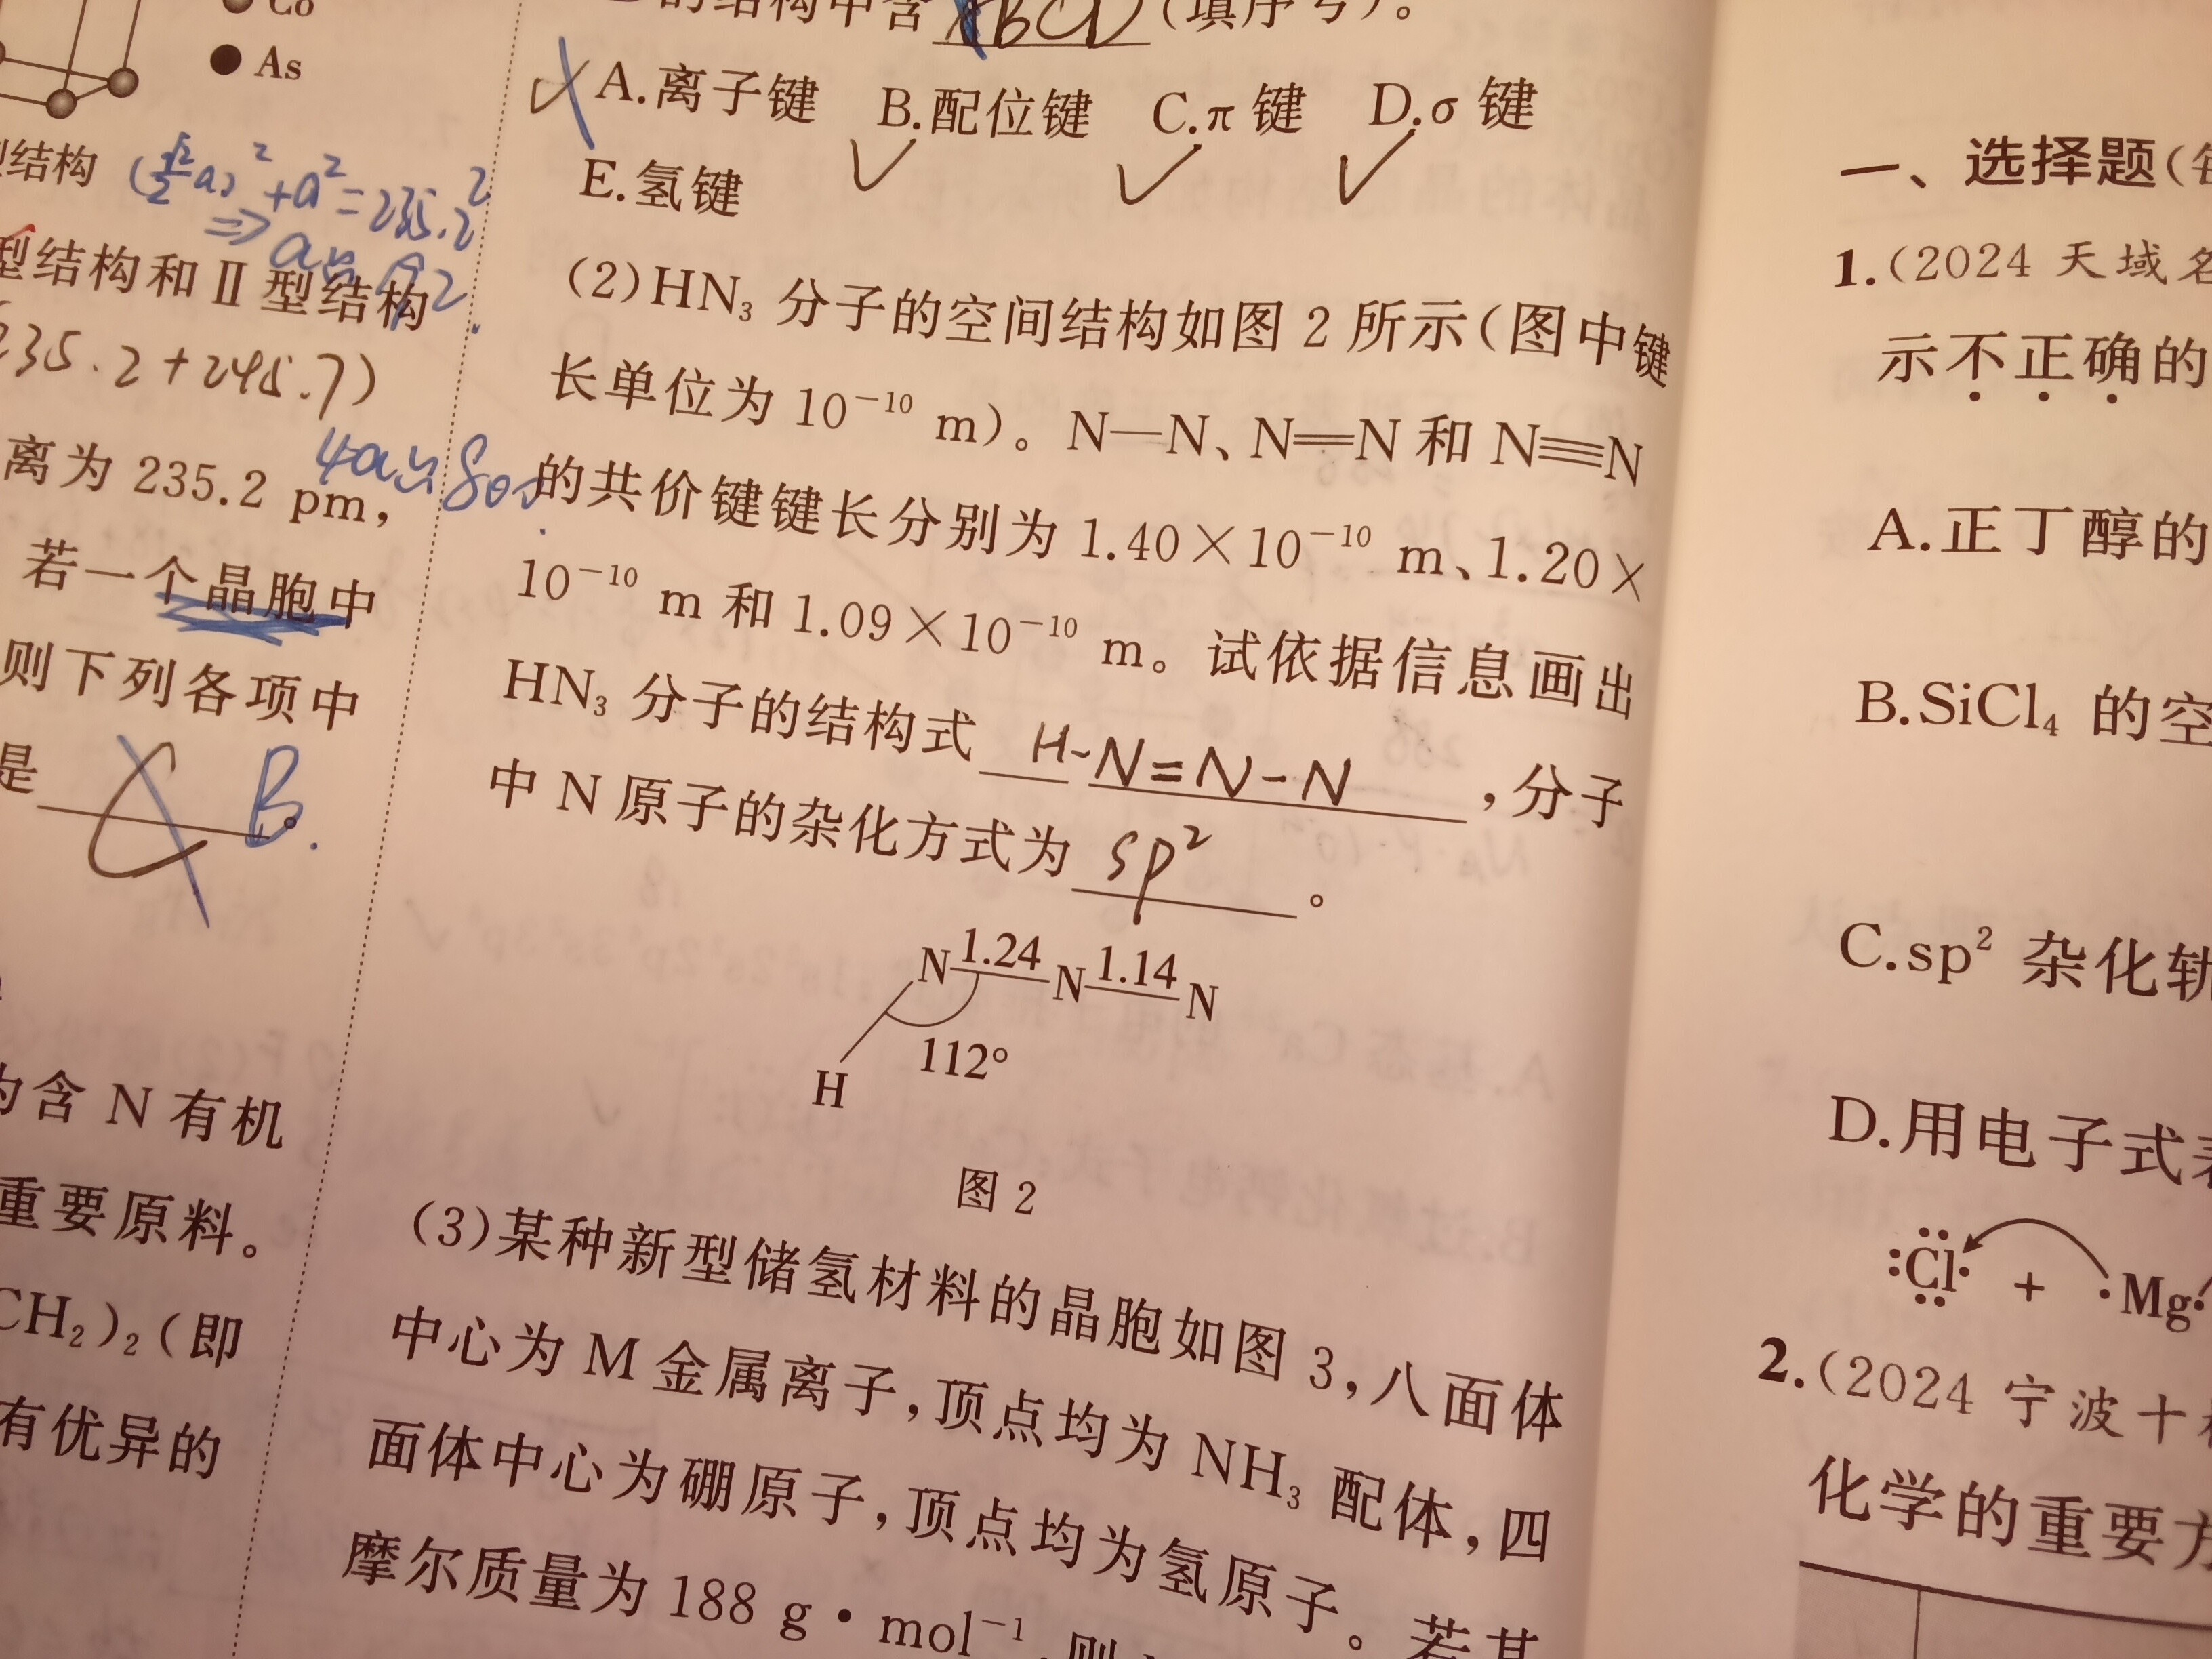 Co
As
型结构
(√2/2 a)²+a²=235.2²
⇒ a≈192.
型结构和Ⅱ型结构
235.2+245.7)
离为 235.2 pm,
4a≈80
若一个晶胞中
则下列各项中
是 C B.
为含 N 有机
重要原料。
CH₂)₂(即
有优异的
的结构中含 ABCD (填序号)。
A.离子键 B.配位键 C.π 键 D.σ 键
E.氢键
(2)HN₃ 分子的空间结构如图 2 所示(图中键
长单位为 10⁻¹⁰ m)。N—N、N=N 和 N≡N
的共价键键长分别为 1.40×10⁻¹⁰ m、1.20×
10⁻¹⁰ m 和 1.09×10⁻¹⁰ m。试依据信息画出
HN₃ 分子的结构式 H-N=N-N ,分子
中 N 原子的杂化方式为 sp² 。
N 1.24 N 1.14 N
112°
H
图 2
(3)某种新型储氢材料的晶胞如图 3,八面体
中心为 M 金属离子,顶点均为 NH₃ 配体,四
面体中心为硼原子,顶点均为氢原子。若其
摩尔质量为 188 g·mol⁻¹,则
一、选择题(每
1.(2024 天域名
示不正确的
A.正丁醇的
B.SiCl₄ 的空
C.sp² 杂化轨
D.用电子式表
:Cl· + ·Mg·
2.(2024 宁波十校
化学的重要方